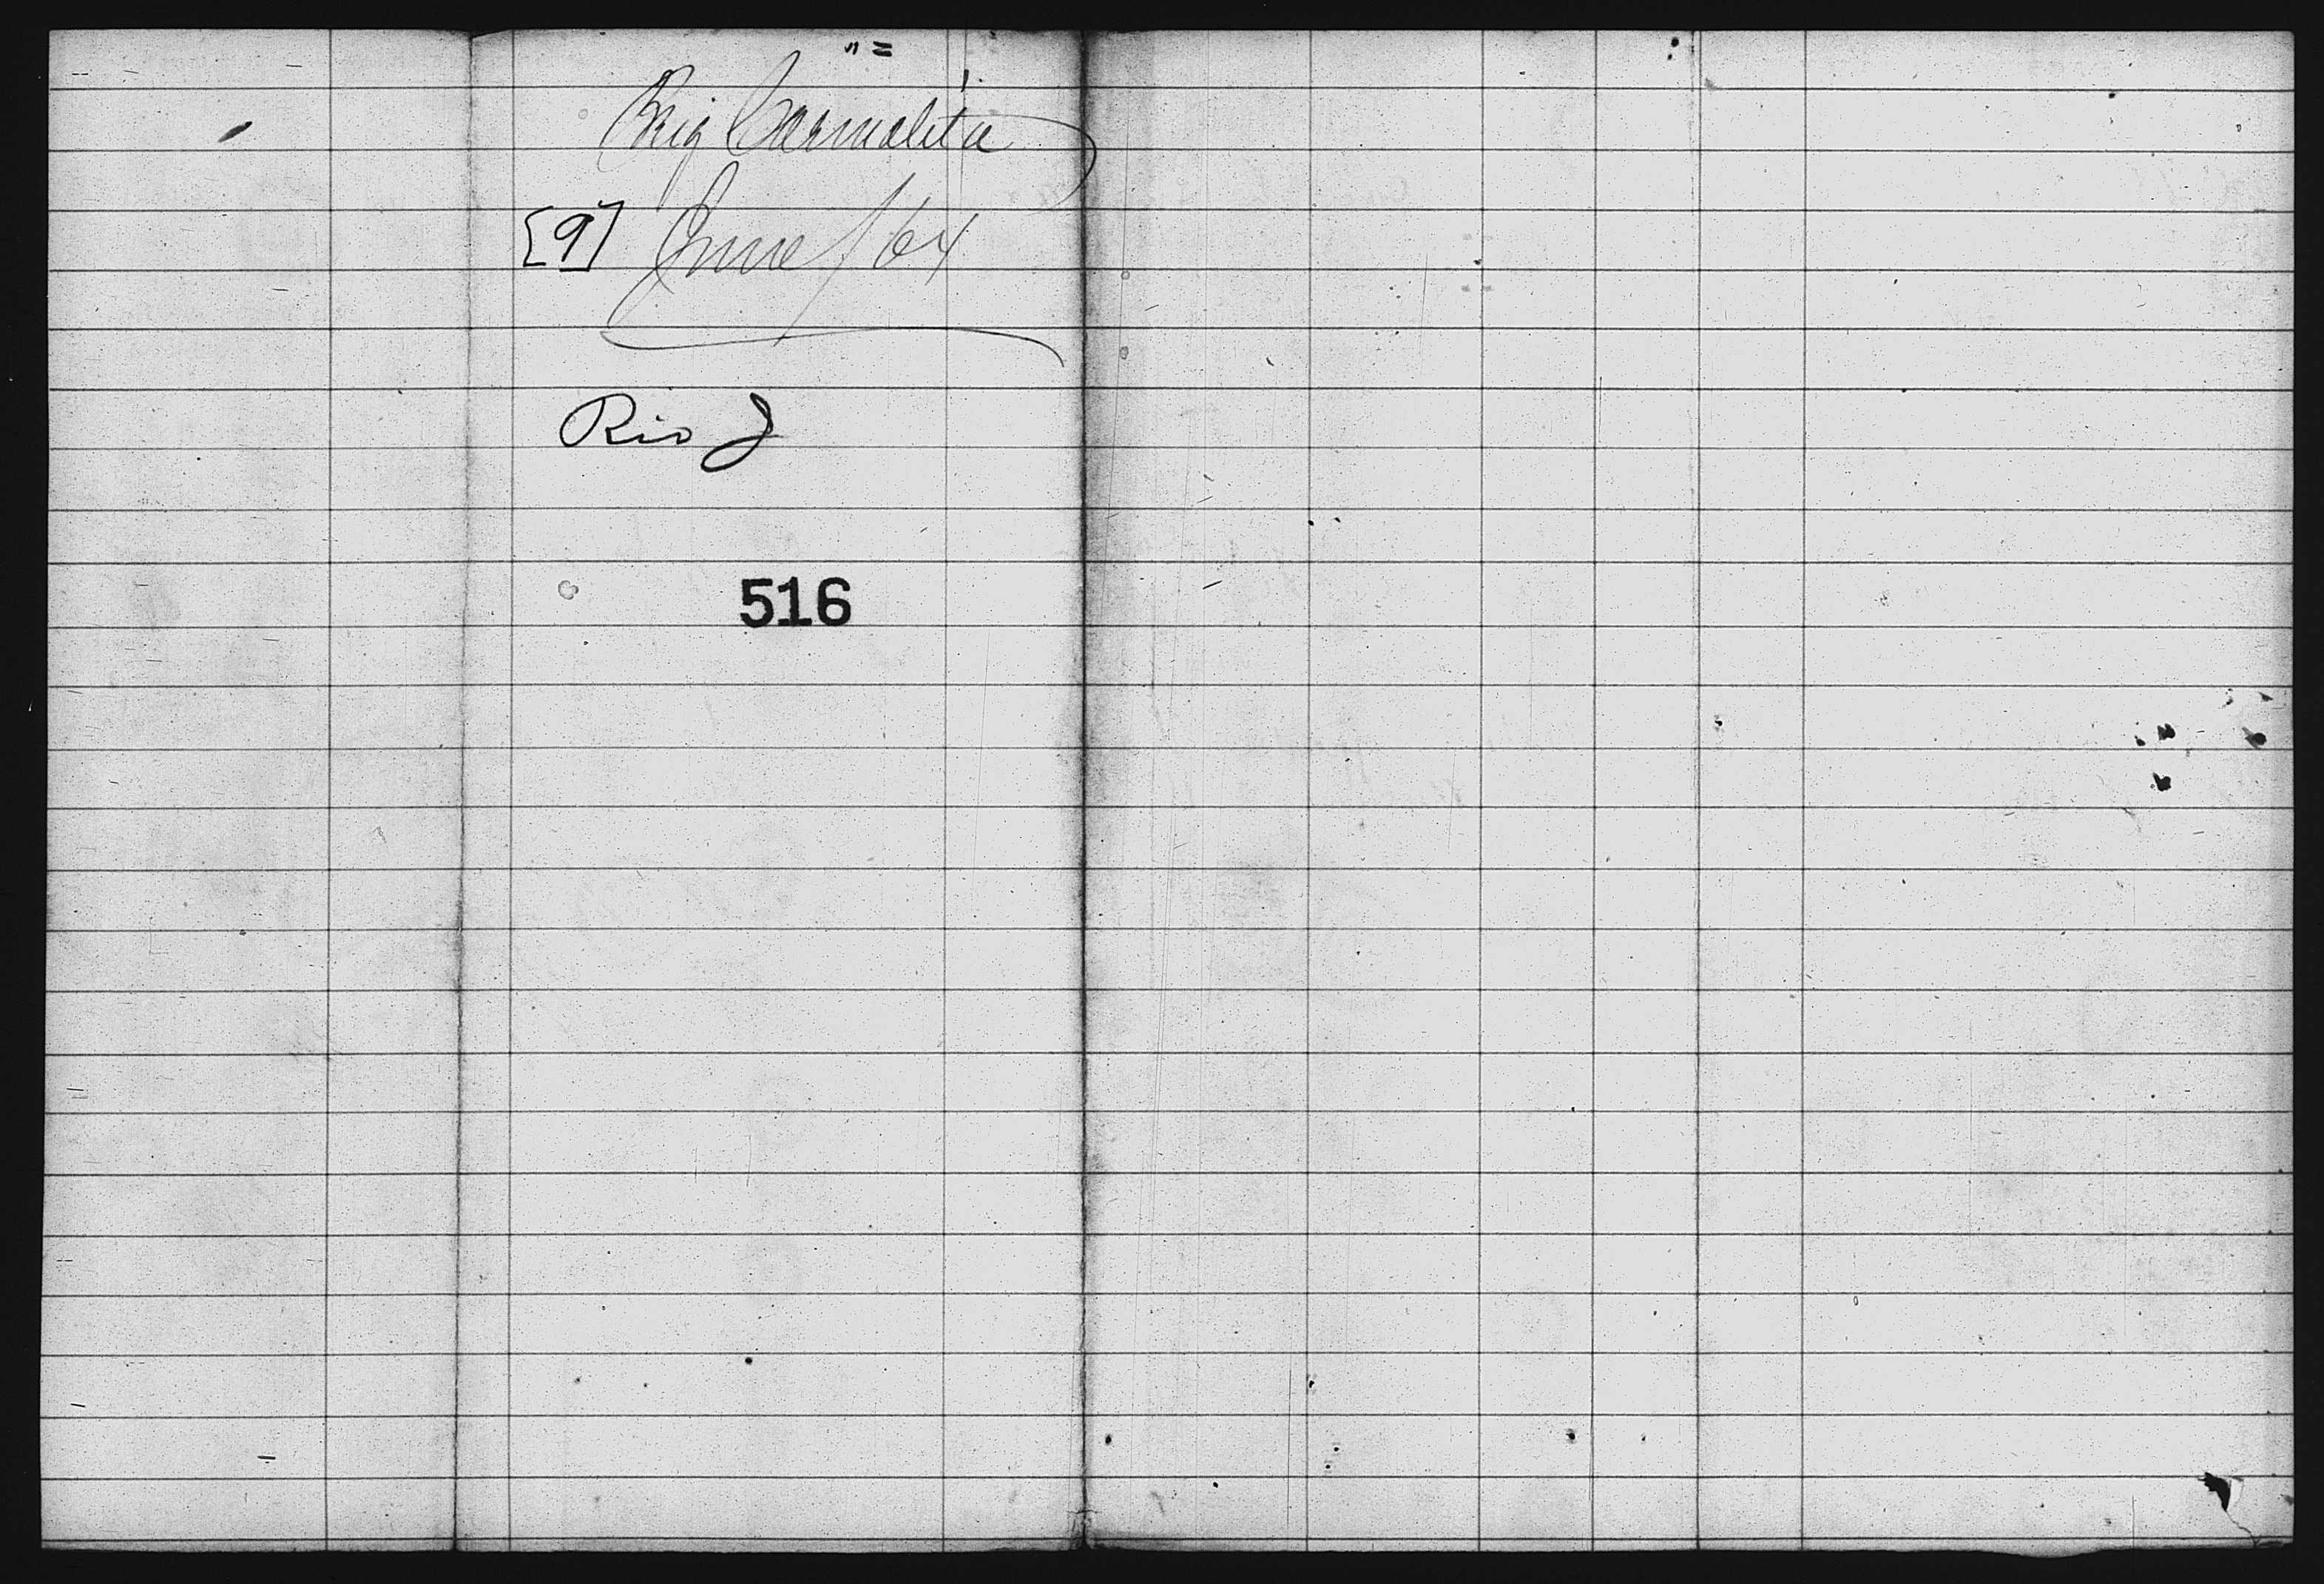 Brig Carmalita
[9] June / 64
Rio J
516